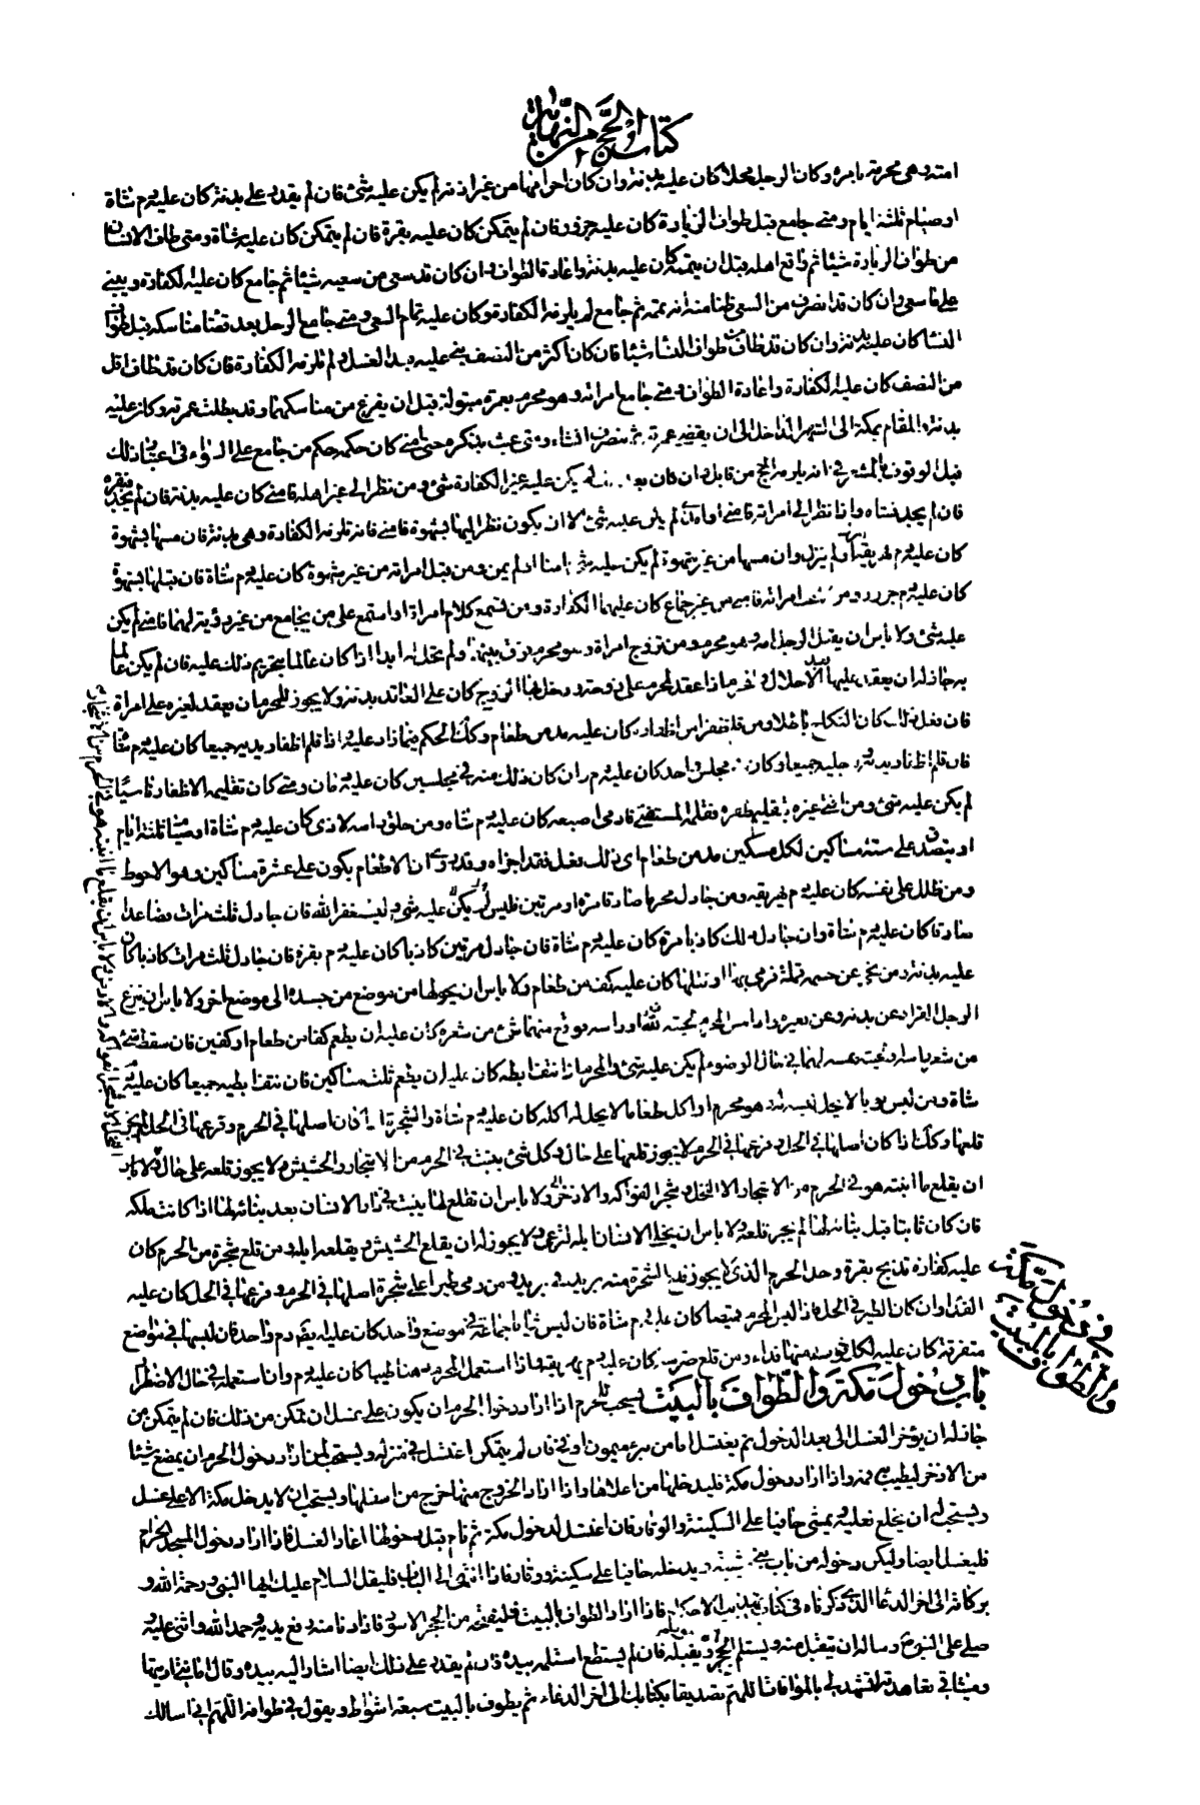 كتاب الحج من النهاية
امته وهي محرمة بامره وكان الرجل محلا كان عليه بدنة وان كان احرامها من غير اذنه لم يكن عليه شئ فان لم يقدر على بدنة كان عليه دم شاة
او صيام ثلثة ايام ومتى جامع قبل طواف الزيارة كان عليه جزور فان لم يتمكن كان عليه بقرة فان لم يتمكن كان عليه شاة ومتى طاف الانسان
من طواف الزيارة شيئا ثم واقع اهله قبل ان يتمه كان عليه بدنة واعادة الطواف وان كان قد سعى من سعيه شيئا ثم جامع كان عليه الكفارة ويبني
على ما سعى وان كان قد انصرف من السعي ظنا منه انه تممه ثم جامع لم يلزمه الكفارة وكان عليه تمام السعي ومتى جامع الرجل بعد قضاء مناسكه قبل طواف
النساء كان عليه بدنة وان كان قد طاف من طواف النساء شيئا فان كان اكثر من النصف بنى عليه بعد الغسل ولم تلزمه الكفارة فان كان قد طاف اقل
من النصف كان عليه الكفارة واعادة الطواف ومتى جامع امراته وهو محرم بعمرة مبتولة قبل ان يفرغ من مناسكها فقد بطلت عمرته وكان عليه
بدنة والمقام بمكة الى الشهر الداخل الى ان يقضي عمرته ثم ينصرف ان شاء ومتى عبث بذكره حتى امنى كان حكمه حكم من جامع على السواء في اعتبار ذلك
قبل الوقوف بالمشعر في انه يلزمه الحج من قابل وان كان بعد لم يكن عليه غير الكفارة شئ ومن نظر الى غير اهله فامنى كان عليه بدنة فان لم يجد فبقرة
فان لم يجد فشاة واذا نظر الى امراته فامنى او امذى لم يكن عليه شئ الا ان يكون نظر اليها بشهوة فامنى فانه تلزمه الكفارة وهي بدنة فان مسها بشهوة
كان عليه دم يهريقه انزل او لم ينزل وان مسها من غير شهوة لم يكن عليه شئ امنى او لم يمن ومن قبل امراته من غير شهوة كان عليه دم شاة فان قبلها بشهوة
كان عليه دم جزور ومن لاعب امراته فامنى من غير جماع كان عليهما الكفارة ومن تسمع لكلام امراة او استمع على من يجامع من غير رؤية لهما فامنى لم يكن
عليه شئ ولا باس ان يقبل الرجل امه وهو محرم ومن تزوج امراة وهو محرم فرق بينهما ولم تحل له ابدا اذا كان عالما بتحريم ذلك عليه فان لم يكن عالما
به جاز له ان يعقد عليها بعد الاحلال والمحرم اذا عقد لمحرم على زوجة ودخل بها الزوج كان على العاقد بدنة ولا يجوز للمحرم ان يعقد لغيره على امراة
فان فعل ذلك كان النكاح باطلا ومن قلم ظفرا من اظفاره كان عليه مد من طعام وكذلك الحكم فيما زاد عليه فاذا قلم اظفار يديه جميعا كان عليه دم شاة
فان قلم اظفار يديه ورجليه جميعا وكان في مجلس واحد كان عليه دم وان كان ذلك منه في مجلسين كان عليه دمان ومتى كان تقليمه الاظفار ناسيا
لم يكن عليه شئ ومن افتى غيره بتقليم ظفره فقلمه المستفتي فادمى اصبعه كان عليه دم شاة ومن حلق راسه لاذى كان عليه دم شاة او صيام ثلثة ايام
او يتصدق على ستة مساكين لكل مسكين مد من طعام اي ذلك فعل فقد اجزاه وقد روي ان الاطعام يكون على عشرة مساكين وهو الاحوط
ومن ظلل على نفسه كان عليه دم يهريقه ومن جادل محرما صادقا مرة او مرتين فليس عليه شئ وليستغفر الله فان جادل ثلث مرات فصاعدا
صادقا كان عليه دم شاة وان جادل ذلك كاذبا مرة كان عليه دم شاة فان جادل مرتين كاذبا كان عليه دم بقرة فان جادل ثلث مرات كاذبا كان
عليه بدنة ومن نحى عن جسمه قملة فرمى بها او قتلها كان عليه كف من طعام ولا باس ان يحولها من موضع من جسده الى موضع اخر ولا باس ان ينزع
الرجل القراد عن بدنه وعن بعيره واذا مس المحرم لحيته او راسه فوقع منهما شئ من شعره كان عليه ان يطعم كفا من طعام او كفين فان سقط شئ
من شعر راسه ولحيته بمسه لهما في حال الوضوء لم يكن عليه شئ والمحرم اذا نتف ابطه كان عليه ان يطعم ثلث مساكين فان نتف ابطيه جميعا كان عليه دم
شاة ومن لبس ثوبا لا يحل لبسه له وهو محرم او اكل طعاما لا يحل له اكله كان عليه دم شاة والشجرة اذا كان اصلها في الحرم وفرعها في الحل لم يجز
قلعها وكذلك اذا كان اصلها في الحل وفرعها في الحرم لا يجوز قلعها على حال وكل شئ ينبت في الحرم من الاشجار والحشيش فلا يجوز قلعه على حال ولا باس
ان يقلع ما انبته هو في الحرم من الاشجار الا النخل وشجر الفواكه والاذخر ولا باس ان تقلع لما ينبت في دار الانسان بعد بنائه لها اذا كانت ملكه
فان كان نابتا قبل بنائه لها لم يجز قلعه ولا باس ان يخلي الانسان ابله لترعى ولا يجوز له ان يقلع الحشيش ويقلعه ابله ومن قلع شجرة من الحرم كان
عليه كفارة تذبح بقرة وحد الحرم الذي لا يجوز قلع الشجرة منه بريد في بريد ومن رمى طيرا على شجرة اصلها في الحرم وفرعها في الحل كان عليه
الفداء وان كان الطير في الحل واذا لبس المحرم قميصا كان عليه دم شاة فان لبس ثيابا جماعة في موضع واحد كان عليه ايضا دم واحد فان لبسها في مواضع
متفرقة كان عليه لكل ثوب منها فداء ومن قلع ضرسه كان عليه دم يهريقه فاذا استعمل المحرم دهنا طيبا كان عليه دم وان استعمله في حال الاضطرار
باب دخول مكة والطواف بالبيت يستحب للمحرم اذا اراد دخول الحرم ان يكون على غسل ان تمكن من ذلك فان لم يتمكن من
جاز له ان يؤخر الغسل الى بعد الدخول ثم يغتسل اما من بئر ميمون او فخ فان لم يتمكن اغتسل في منزله ويستحب لمن اراد دخول الحرم ان يمضغ شيئا
من الاذخر ليطيب به فمه واذا اراد دخول مكة فليدخلها من اعلاها واذا اراد الخروج منها خرج من اسفلها ويستحب ان لا يدخل مكة الا على غسل
ويستحب له ان يخلع نعليه ويمشي حافيا على السكينة والوقار فان اغتسل لدخول مكة ثم نام قبل دخولها اعاد الغسل فاذا اراد دخول المسجد الحرام
فليغتسل ايضا وليكن دخوله من باب بني شيبة ويدخله حافيا على سكينة ووقار فاذا انتهى الى الباب فليقل السلام عليك ايها النبي ورحمة الله و
بركاته الى اخر الدعاء الذي ذكرناه في كتاب تهذيب الاحكام فاذا اراد الطواف بالبيت فليفتتحه من الحجر الاسود فاذا دنا منه رفع يديه وحمد الله واثنى عليه
وصلى على النبي وساله ان يتقبل منه ويستلم الحجر ويقبله فان لم يستطع استلمه بيده فان لم يقدر على ذلك ايضا اشار اليه بيده وقال امانتي اديتها
وميثاقي تعاهدته لتشهد لي بالموافاة اللهم تصديقا بكتابك الى اخر الدعاء ثم يطوف بالبيت سبعة اشواط ويقول في طوافه اللهم اني اسالك
في دخول مكة
والطواف بالبيت